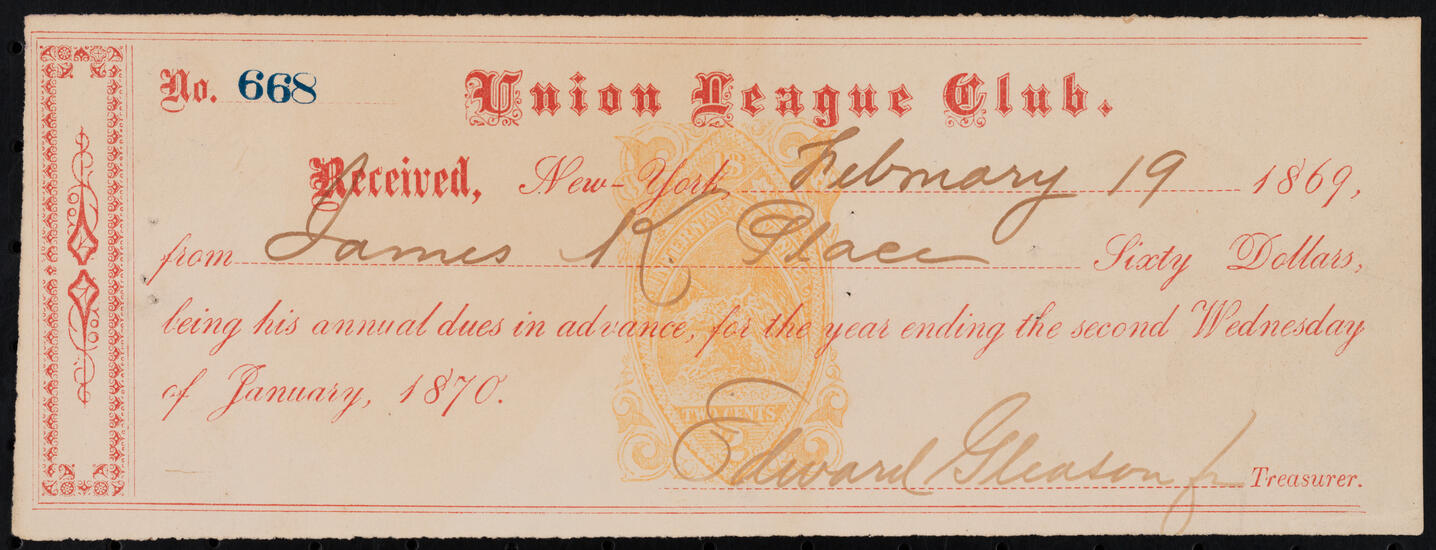 No. 668 Union League Club.
Received, New-York, February 19 1869,
from James K. Place Sixty Dollars,
being his annual dues in advance, for the year ending the second Wednesday
of January, 1870.
TWO CENTS
Edward Gleason Jr Treasurer.